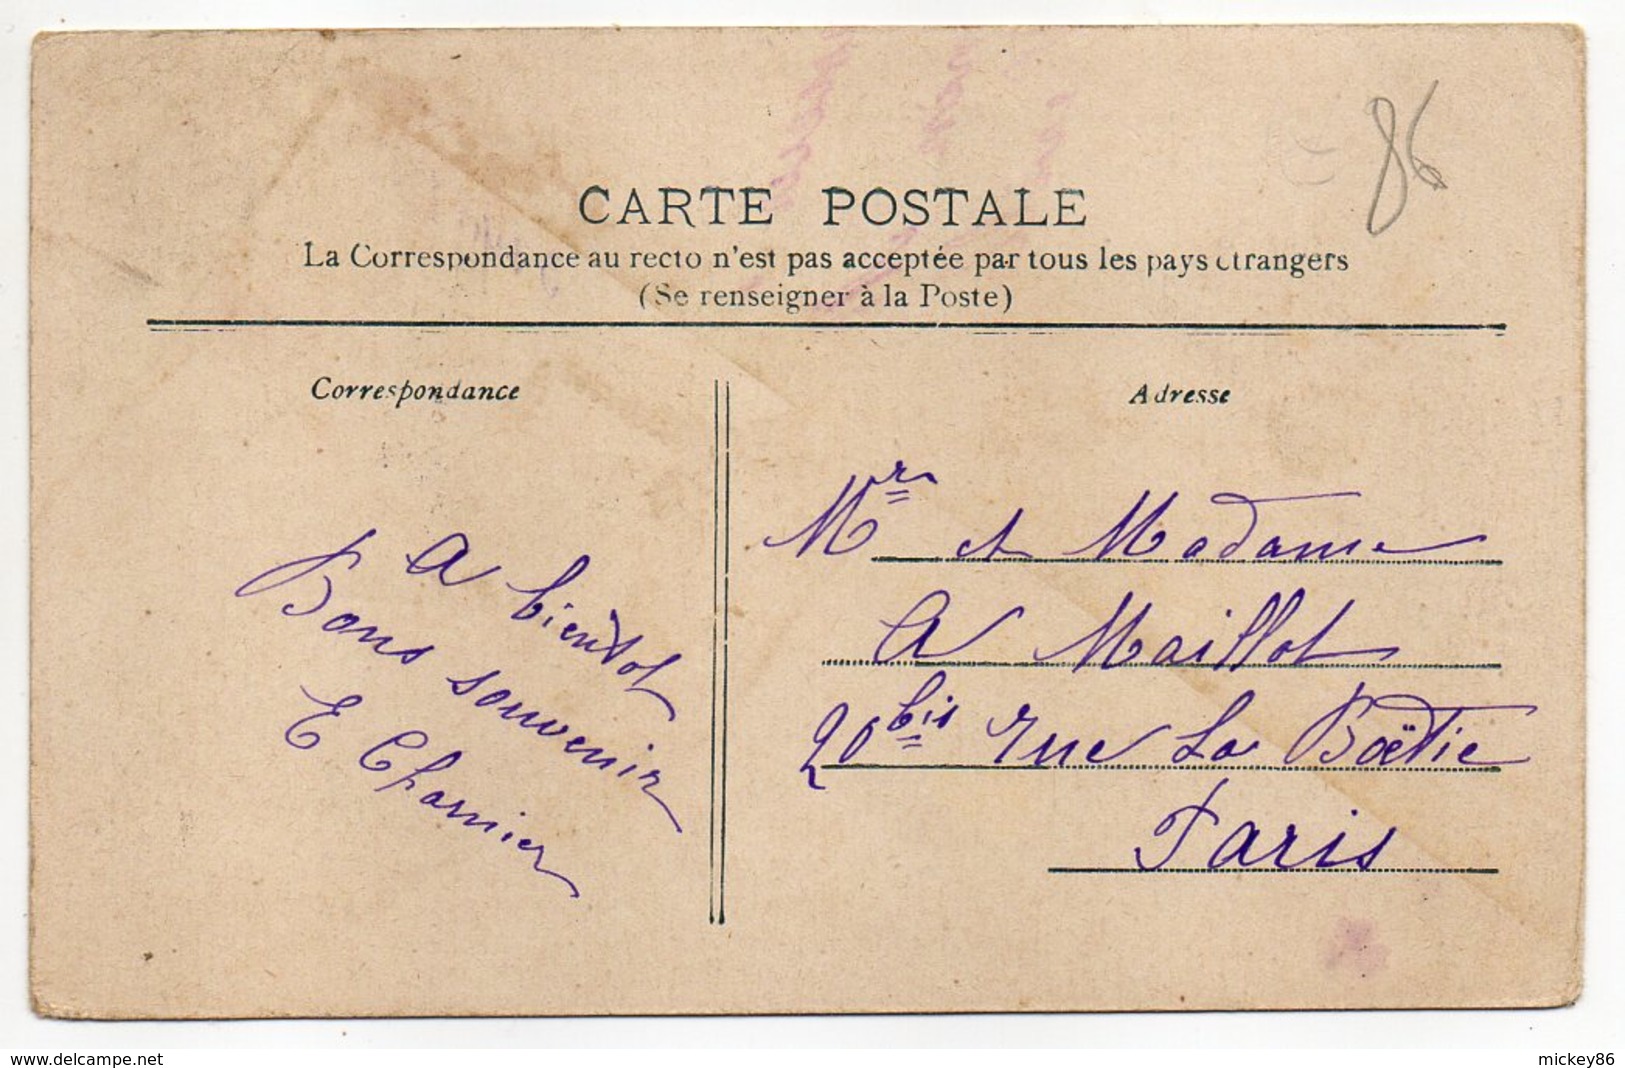 86
CARTE POSTALE
La Correspondance au recto n'est pas acceptée par tous les pays étrangers
(Se renseigner à la Poste)
Correspondance
A bientot
Bons souvenir
E Charrier
Adresse
Mr et Madame
A Maillot
20 bis rue La Boëtie
Paris
www.delcampe.net
mickey86